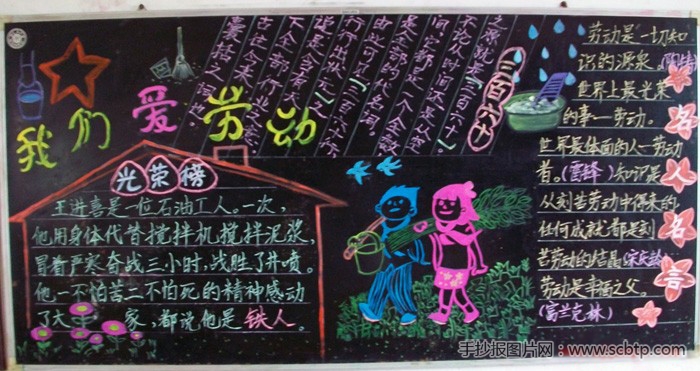 我们爱劳动
光荣榜
王进喜是一位石油工人。一次,
他用身体代替搅拌机搅拌泥浆,
冒着严寒奋战三小时,战胜了井喷。
他一不怕苦二不怕死的精神感动
了大家,都说他是铁人。
三百六十
之源就"三百六十"
不论从时间还是从空
间,它都是一个全数
是全部的代名词。
由此可见"三百六十行,
行行出状元"之
下全部行业之
古往今来
囊括之词
劳动是一切知
识的源泉。(陶铸)
世界上最光荣
的事—劳动。
世界最体面的人—劳动
者。(雷锋)知识是
从刻苦劳动中得来的
任何成就都是刻
苦劳动的结晶(宋庆龄)
劳动是幸福之父。
(富兰克林)
名人名言
手抄报图片网:www.scbtp.com